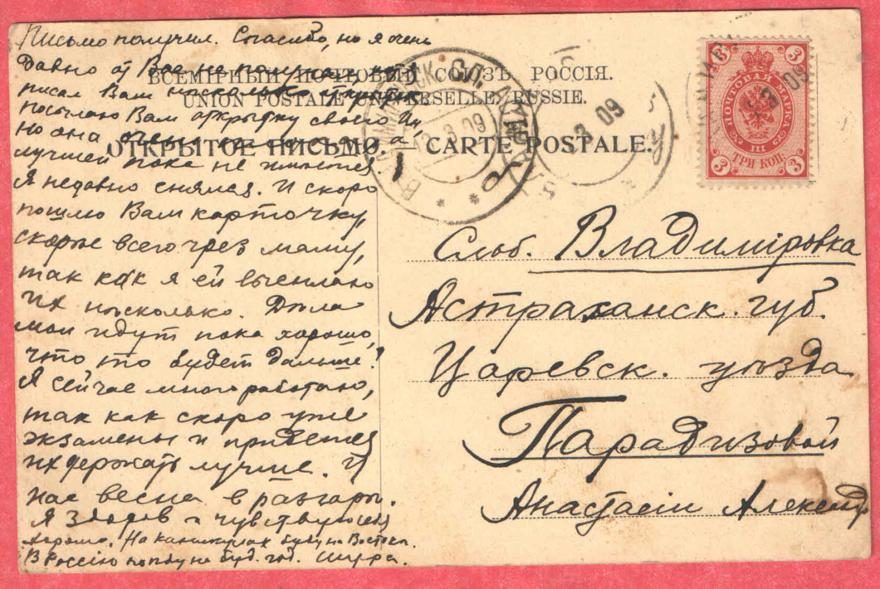 Письмо получил. Спасибо, но я очень
давно от Вас не получалъ
писал Вам нѣсколько открыток
посылаю Вам открытку своего
но она очень
лучшей пока не имеется
Я недавно снялся. И скоро
пошлю Вам карточку,
скорѣе всего чрез маму,
так как я ей высылаю
их нѣсколько. Дѣла
мои идут пока хорошо,
что то будет дальше?
Я сейчас много работаю,
так как скоро уже
экзамены и придется
их держать лучше. У
нас весна в разгарѣ.
Я здоров и чувствую себя
хорошо. На каникулах буду на Востоке.
В Россию попаду на буд. год. Шура.
ВСЕМІРНЫЙ ПОЧТОВЫЙ СОЮЗЪ. РОССІЯ.
UNION POSTALE UNIVERSELLE. RUSSIE.
ОТКРЫТОЕ ПИСЬМО. — CARTE POSTALE.
3 3
ПОЧТОВАЯ МАРКА
III
3 ТРИ КОП. 3
3 09
Слоб. Владиміровка
Астраханск. губ.
Царевск. уѣзда
Парадизовой
Анастасіи Александр